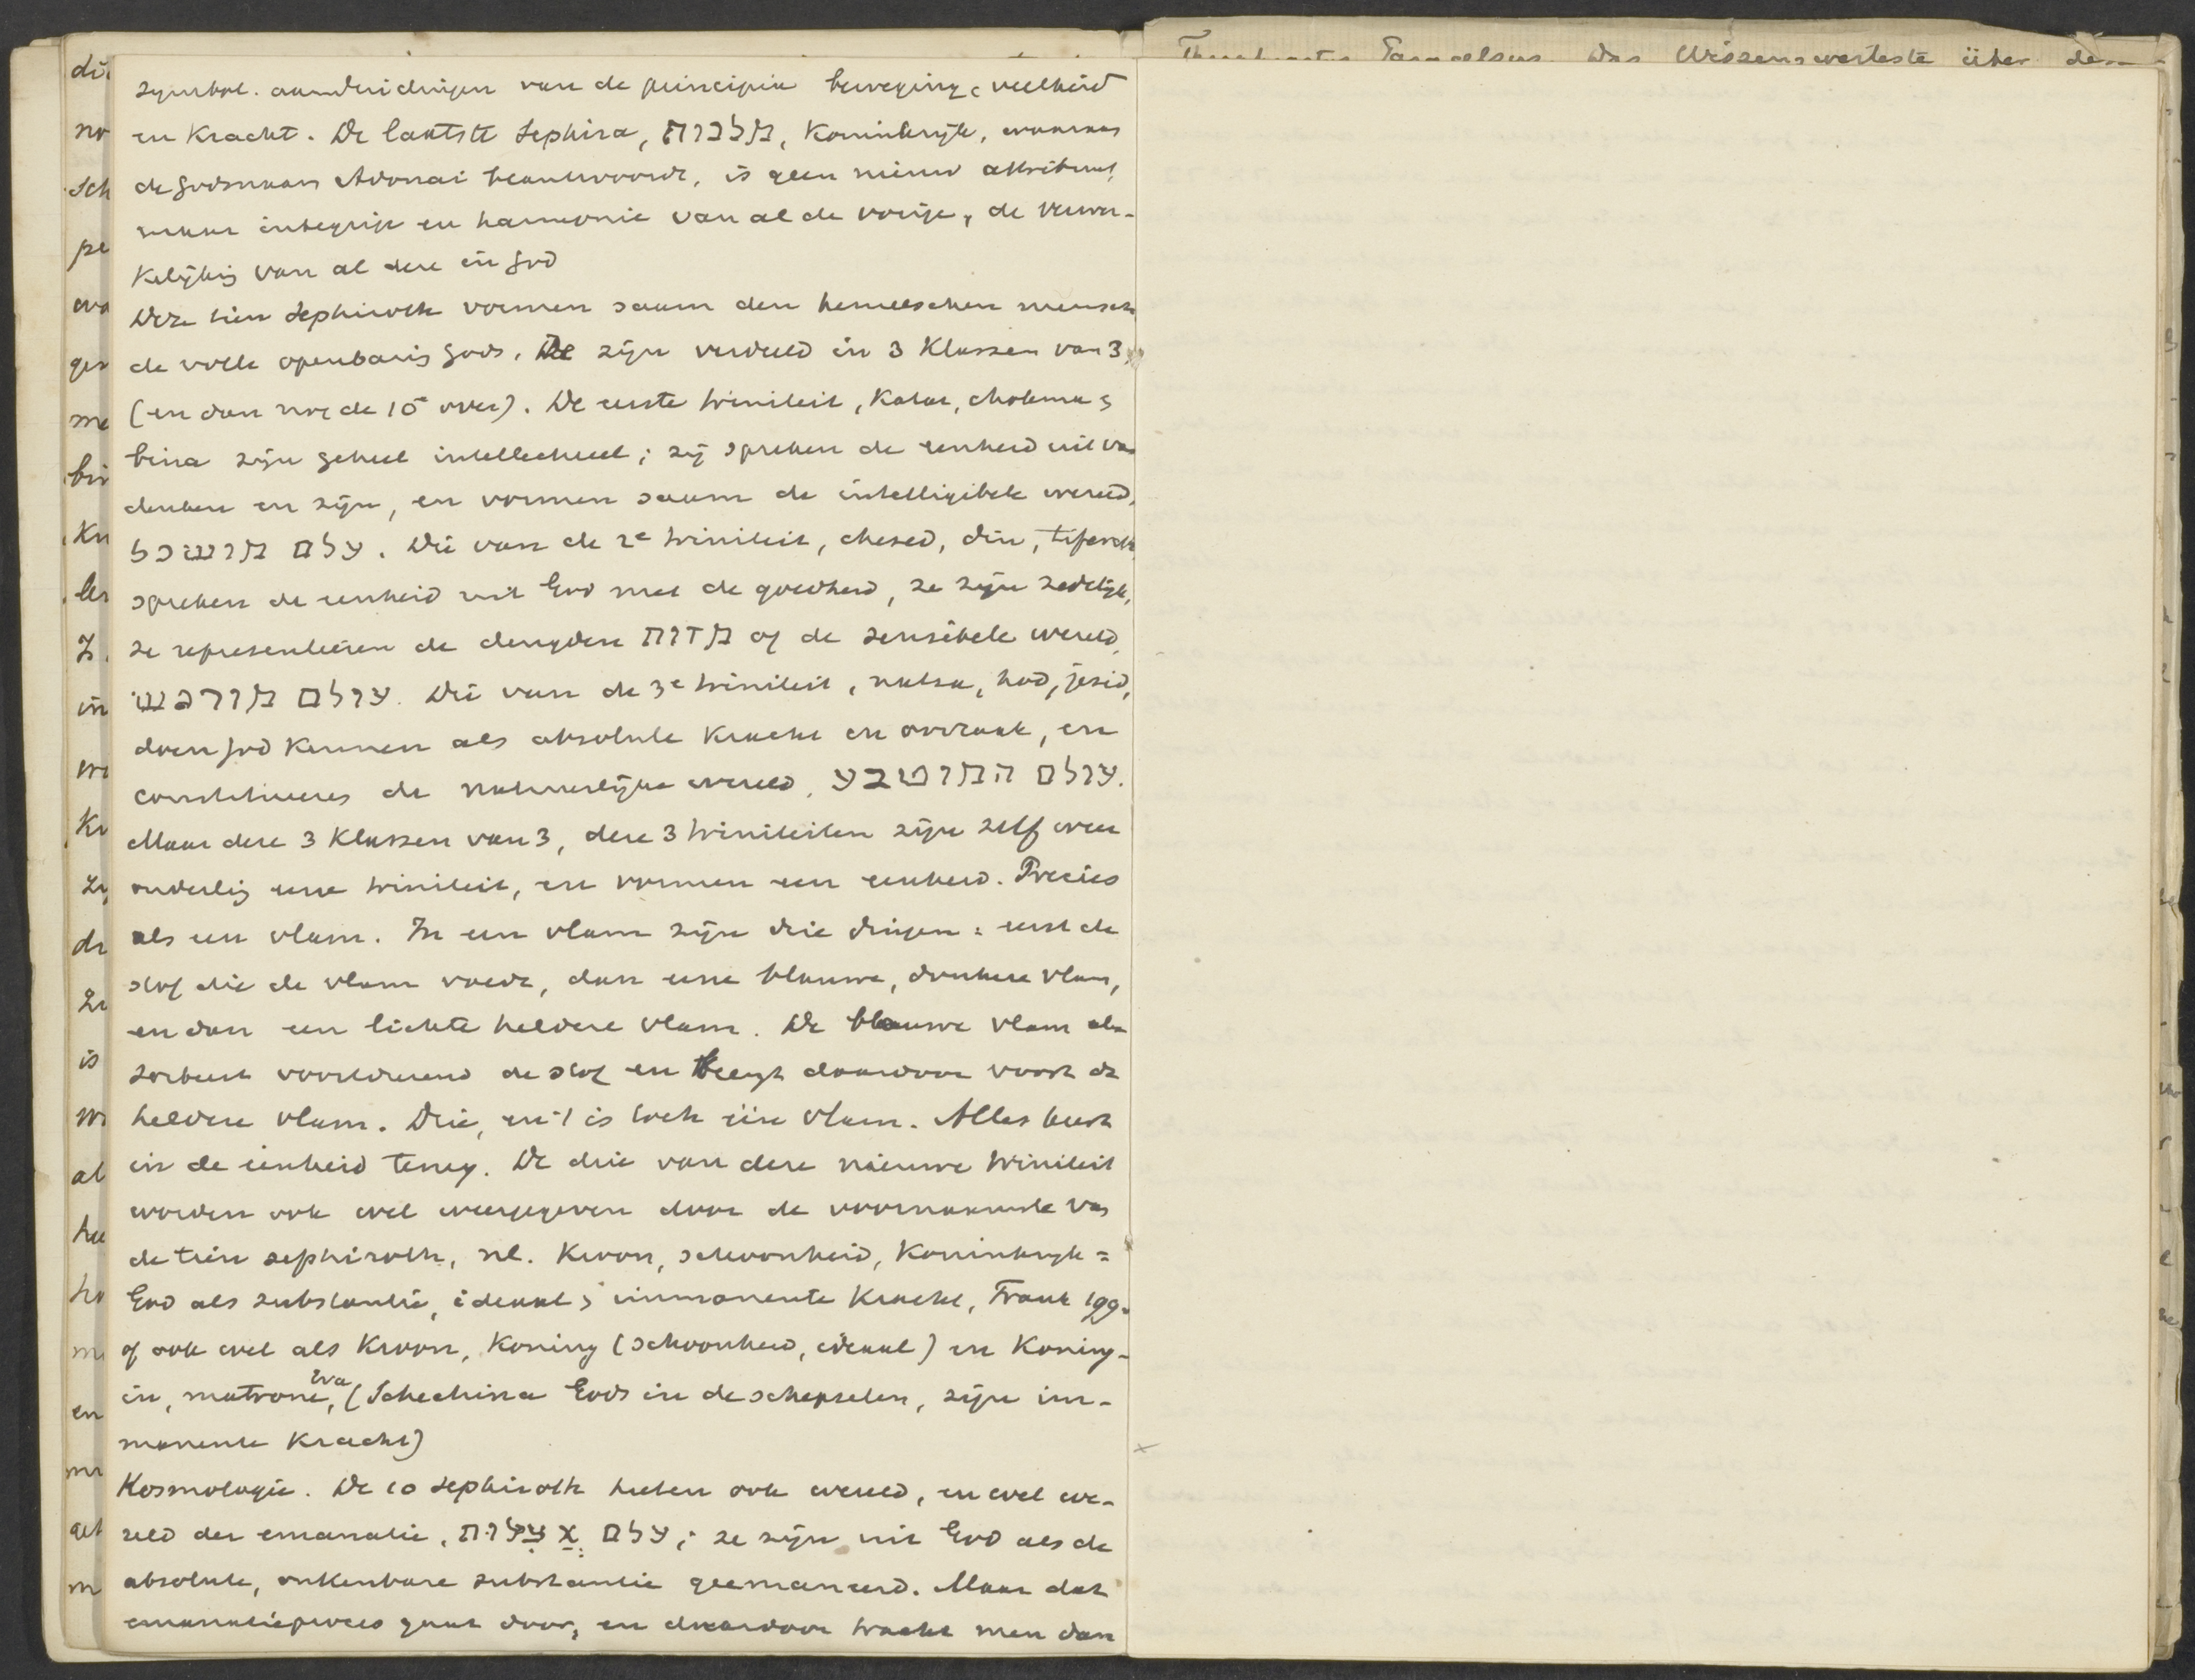 symbol. aanduidingen van de principia beweging, veelheid
en kracht. De laatste Sephira, מלכות, Koninkrijk, waaraan
de godsnaam Adonai beantwoordt, is geen nieuw attribuut,
maar inbegrip en harmonie van al de vorige, de verwer-
kelijking van al deze in God
Deze tien Sephiroth vormen saam den hemelschen mensch
de volle openbaring Gods. De zijn verdeeld in 3 Klassen van 3,
(en dan nog de 10e over). De eerste triniteit, Kater, chokma &
bina zijn geheel intellectueel; zij spreken de eenheid uit van
denken en zijn, en vormen saam de intelligibele wereld,
עלם מושכל. Die van de 2e triniteit, chesed, din, tifereth
spreken de eenheid uit God met de goedheid, ze zijn zedelijk,
ze representeeren de deugden מדות of de sensibele wereld,
עולם מורגש. Die van de 3e triniteit, netsa, hod, jesid,
doen God kennen als absolute kracht en oorzaak, en
constitueeren de natuurlijke wereld, עולם המוטבע.
Maar deze 3 Klassen van 3, deze 3 triniteiten zijn zelf weer
onderling eene triniteit, en vormen een eenheid. Precies
als een vlam. In een vlam zijn drie dingen: eerst de
stof die de vlam voedt, dan eene blauwe, donkere vlam,
en dan een lichte heldere vlam. De blauwe vlam ab-
sorbeert voortdurend de stof en brengt daardoor voort de
heldere vlam. Drie, en 't is toch één vlam. Alles keert
in de eenheid terug. De drie van deze nieuwe triniteit
worden ook wel weergegeven door de voornaamste van
de tien sephiroth, nl. Kroon, schoonheid, Koninkrijk =
God als substantie, ideaal & immanente kracht, Frank 199.
of ook wel als Kroon, Koning (schoonheid, ideaal) en Koning-
in, matrone, Eva (Schechina Gods in de schepselen, zijn im-
manente kracht)
Kosmologie. De 10 Sephiroth heeten ook wereld, en wel we-
reld der emanatie, עלם אצילות; ze zijn uit God als de
absolute, onkenbare substantie geemaneerd. Maar dat
emanatieproces gaat door, en daardoor tracht men dan
Paracelsus. Das Wissenswerteste über